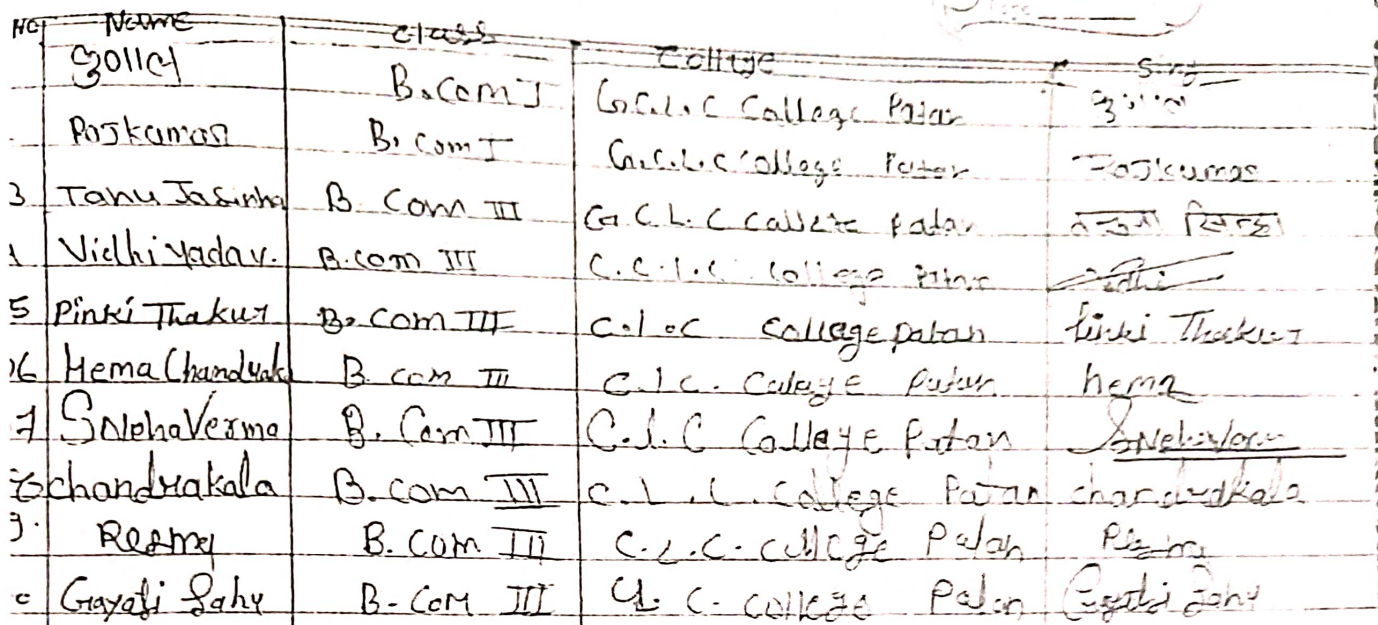 NO Name Class College Sing
B.Com I G.C.L.C College Patan
Rajkumar B. Com I G.C.L.C College Patan Rajkumar
3 Tanu Jasinha B. Com III G.C.L.C College Patan तनुजा सिन्हा
Vidhi Yadav. B.com III C.C.L.C College Patan Vidhi
5 Pinki Thakur B. Com III C.L.C College patan Pinki Thakur
06 Hema Chandrakar B. com III C.L.C. College Patan hema
7 Sneha Verma B. Com III C.L.C College Patan
8 Chandrakala B. com III C.L.C. College Patan chandrakala
9. B. Com III C.L.C. College Patan
Gayatri Sahu B. Com III C.L.C. College Patan Gayatri Sahu